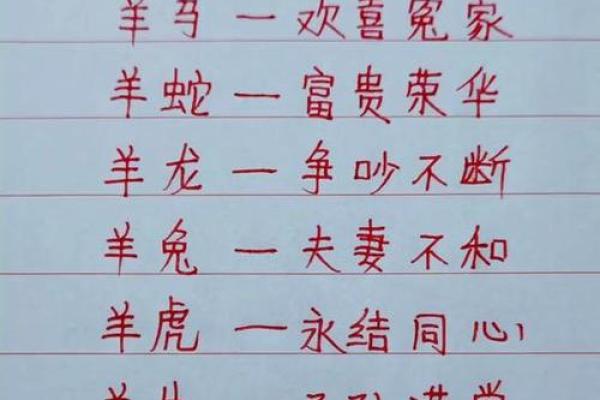 羊马一欢喜冤家
羊蛇一富贵荣华
羊龙一争吵不断
羊兔一夫妻不和
羊虎一永结同心